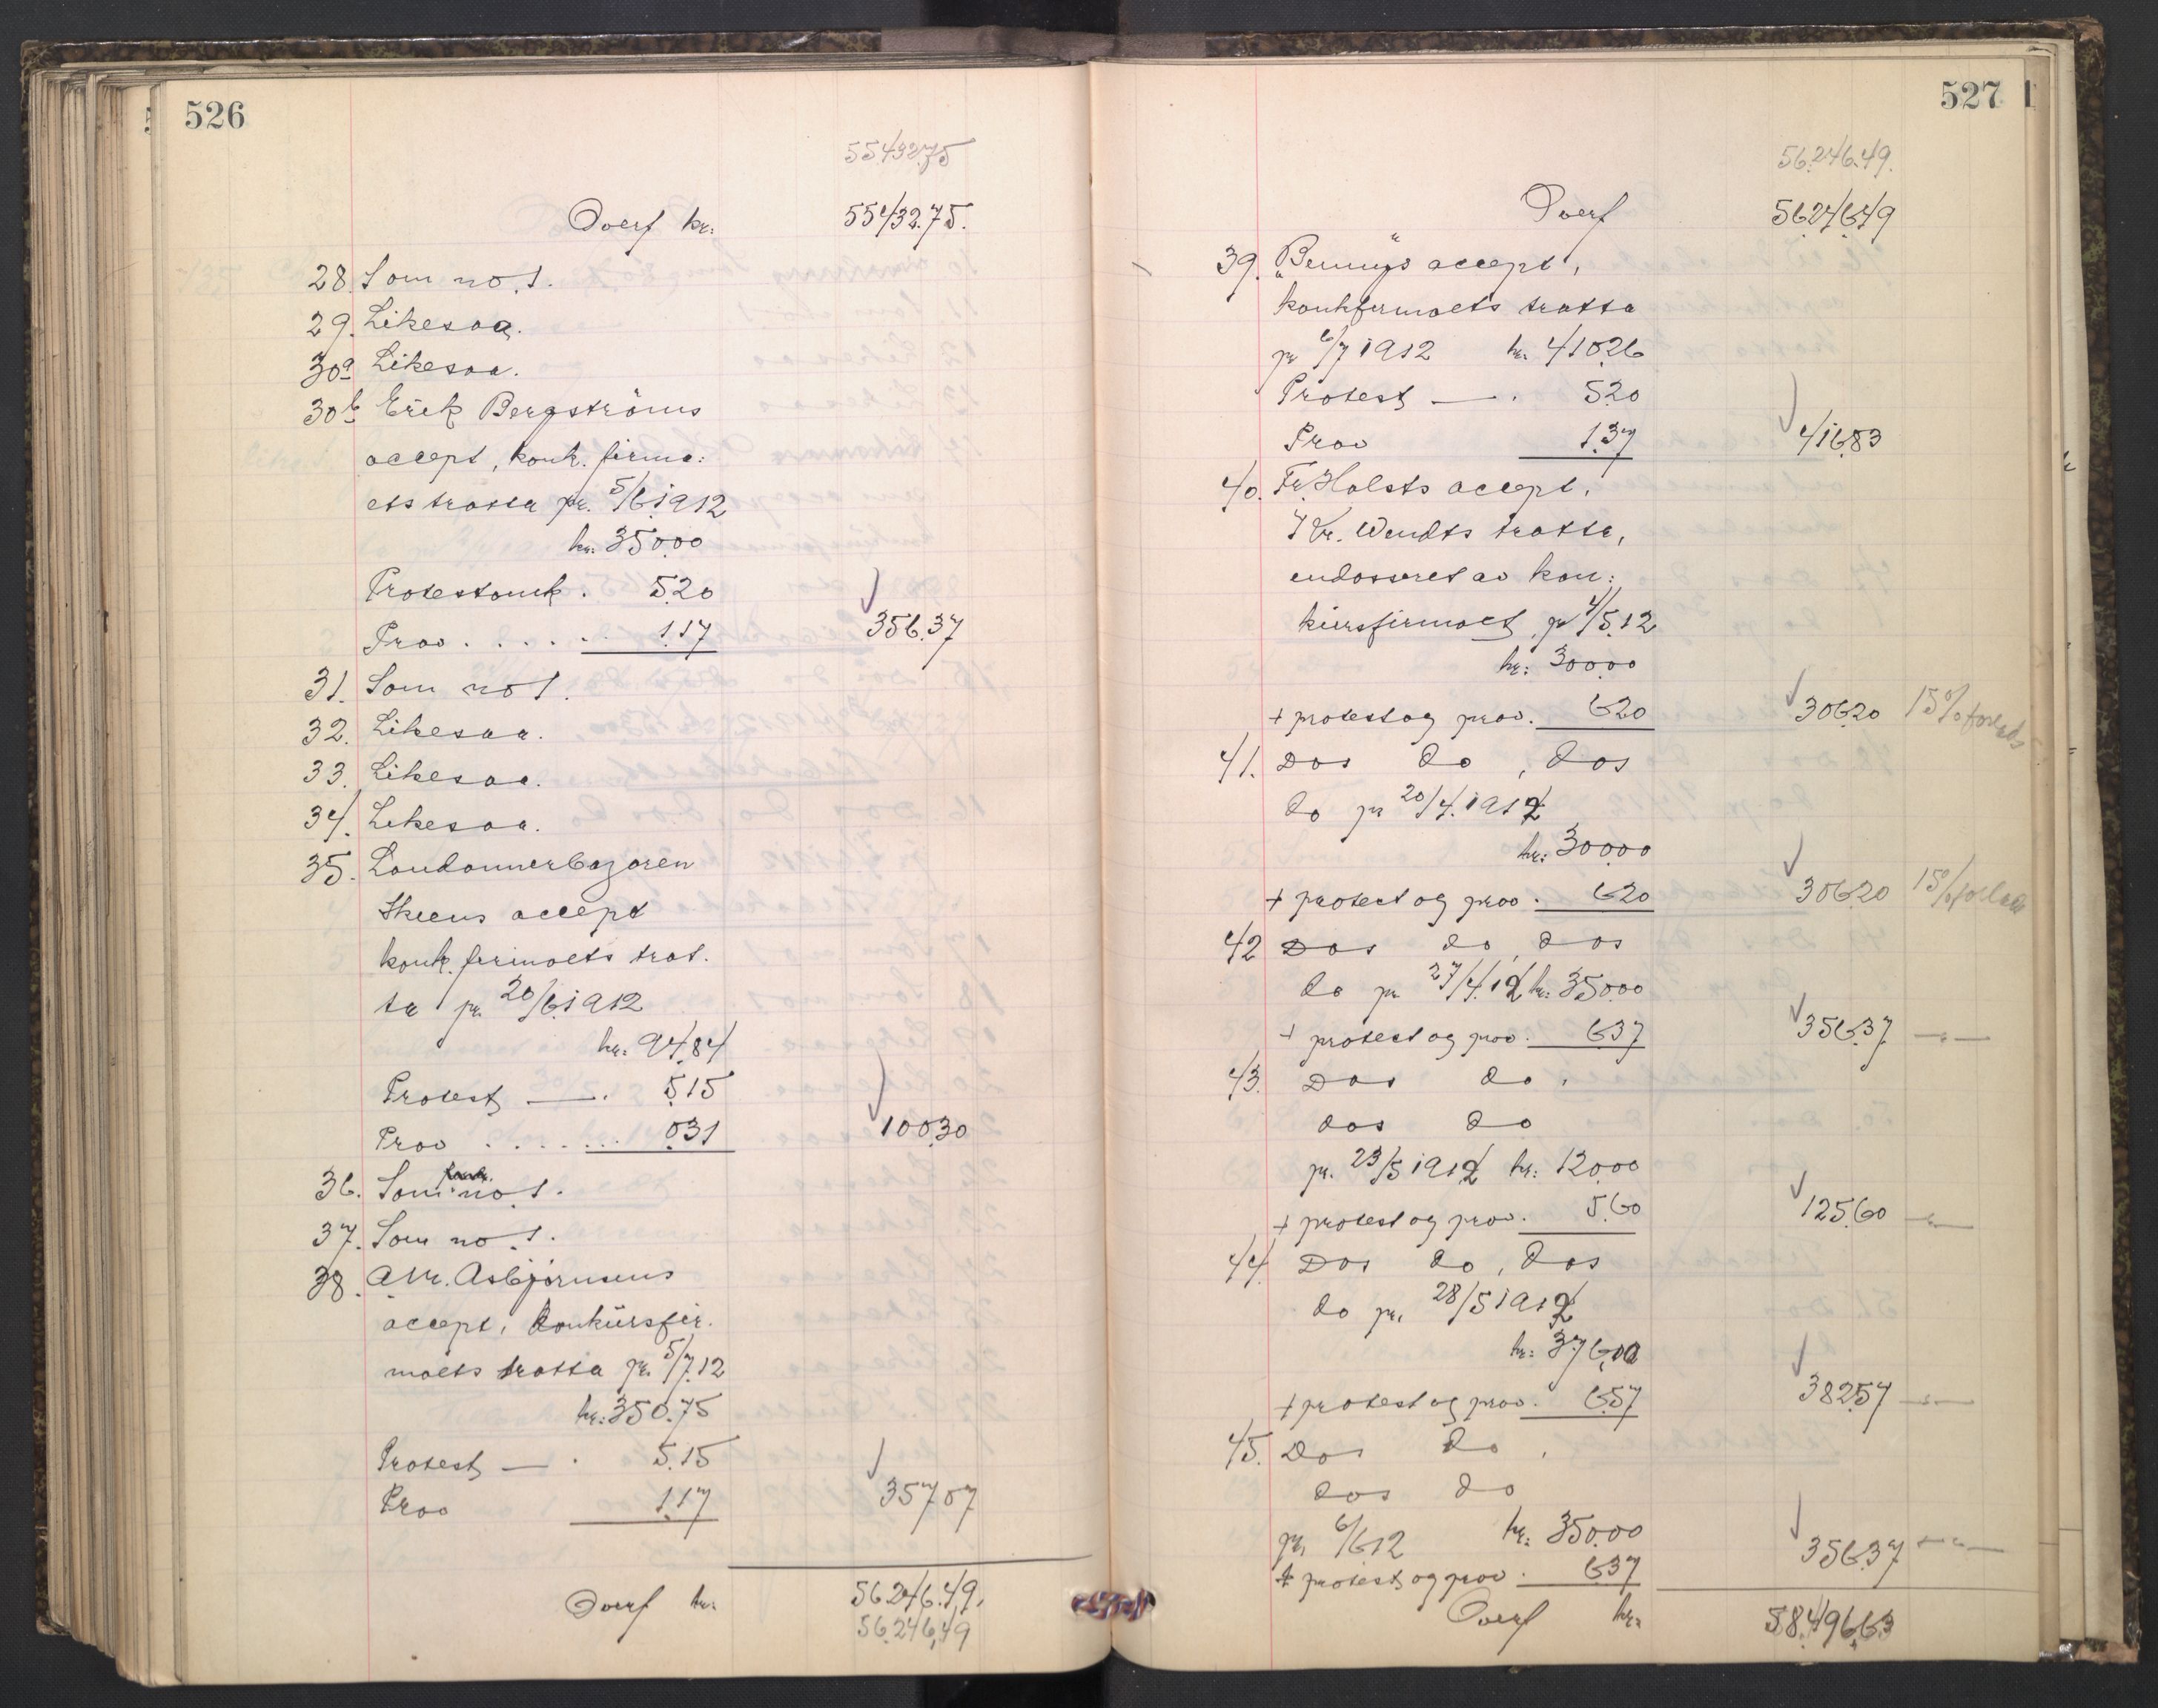 526
55432.75
Overf kr: 55432.75.
28. Som no. 1.
29. Likesaa.
30a Likesaa.
30b Erik Bergströms
accept, konk. firma:
ets tratta pr. 5/6 1912
kr: 350.00
Protestomk. 5.20
Prov. . . . . . 1.17 356.37
31. Som no 1.
32. Likesaa.
33. Likesaa.
34. Likesaa.
35. Londonnerbazaren
Skiens accept
konk. firmaets trat.
ta pr. 20/6 1912
kr: 94.84
Protest —. 5.15
Prov . . . . . . . 0.31 100.30
36. Som no. 1.
37. Som no. 1.
38. A Mr. Asbjørnsens
accept, konkürsfir.
maets tratta pr. 5/7.12
kr: 350.75
Protest — . 5.15
Prov 1.17 357 07
Overf kr: 56.246.49.
56.246,49
527
56.246.49.
Overf 56246.49
39. "Bennys" accept,
konkfirmaets tratta
pr 6/7 1912 kr. 410.26
Protest — . 5.20
Prov 1.37 416.83
40. Fr. Holsts accept.
Kr. Wendts tratta,
endosseret av kon:
kürsfirmaet, pr 4/5.12
kr: 300.00
+ protest og prov. 6.20 306.20 15%
41. Dos do, dos
do pr 20/4. 1912
kr: 300.00
+ protest og prov. 6.20 306.20 15%
42 Dos do, dos
do pr. 27/4.12 kr: 350.00
+ protest og prov. 6.37 356.37 —"—
43. Dos do,
dos do
pr. 23/5 1912 kr: 120.00
+ protest og prov. 5.60 125.60 —"—
44. Dos do, dos
do pr. 28/5 1912
kr: 376.00
+ protest og prov. 6.57 382.57 —"—
45. Dos do,
dos do
pr. 6/6 12 kr: 350.00
+ protest og prov. 6.37 356.37 —"—
Overf kr: 58.496,63